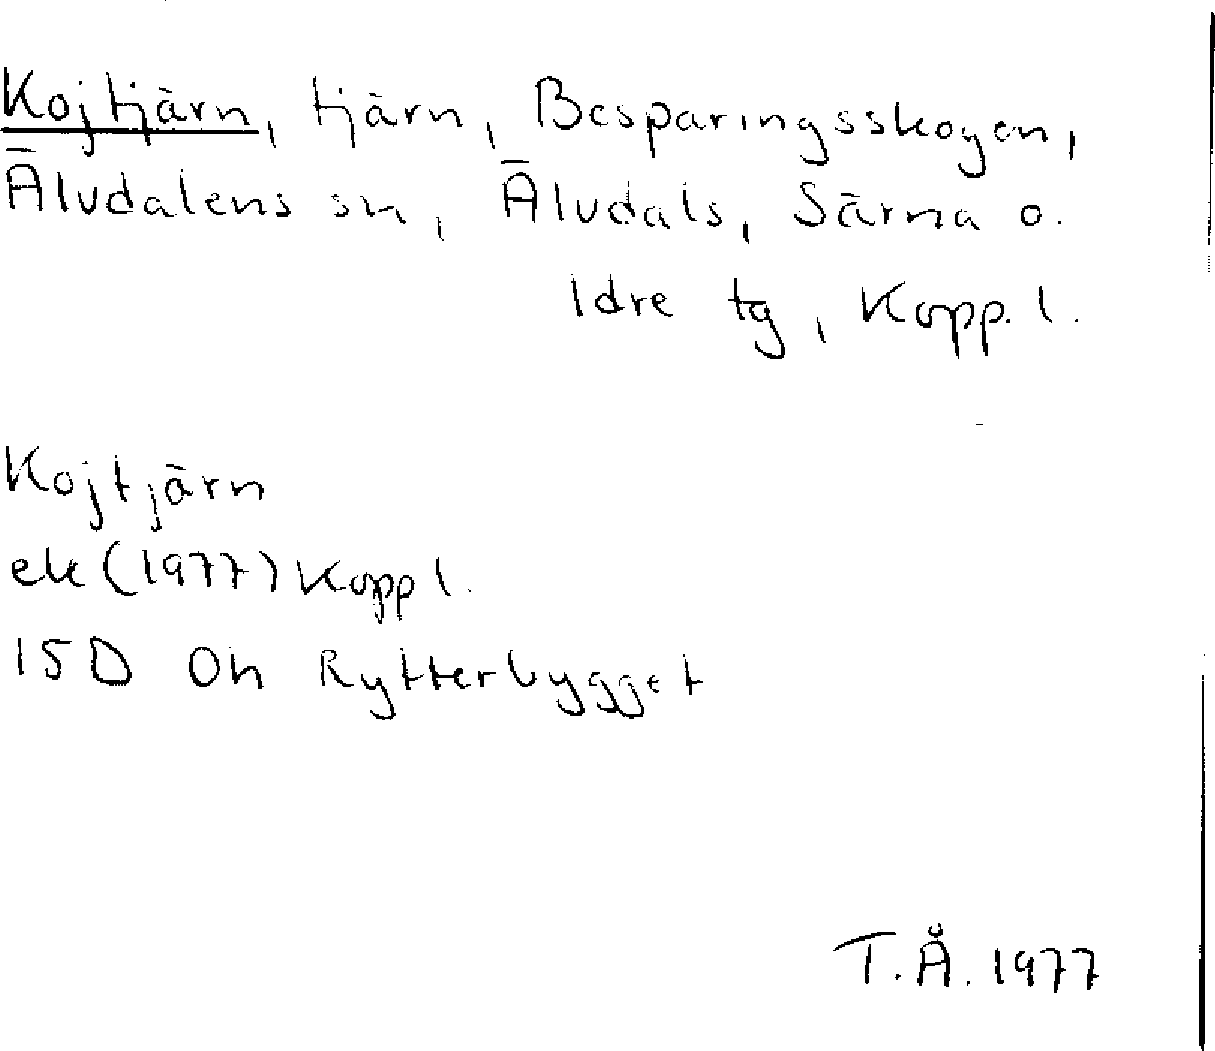 Kojtjärn, tjärn, Besparingsskogen,
Älvdalens sn, Älvdals, Särna o.
Idre tg, Kopp. l.
Kojtjärn
ek (1977) Kopp l.
15D 0h Rytterbygget
T.Å. 1977